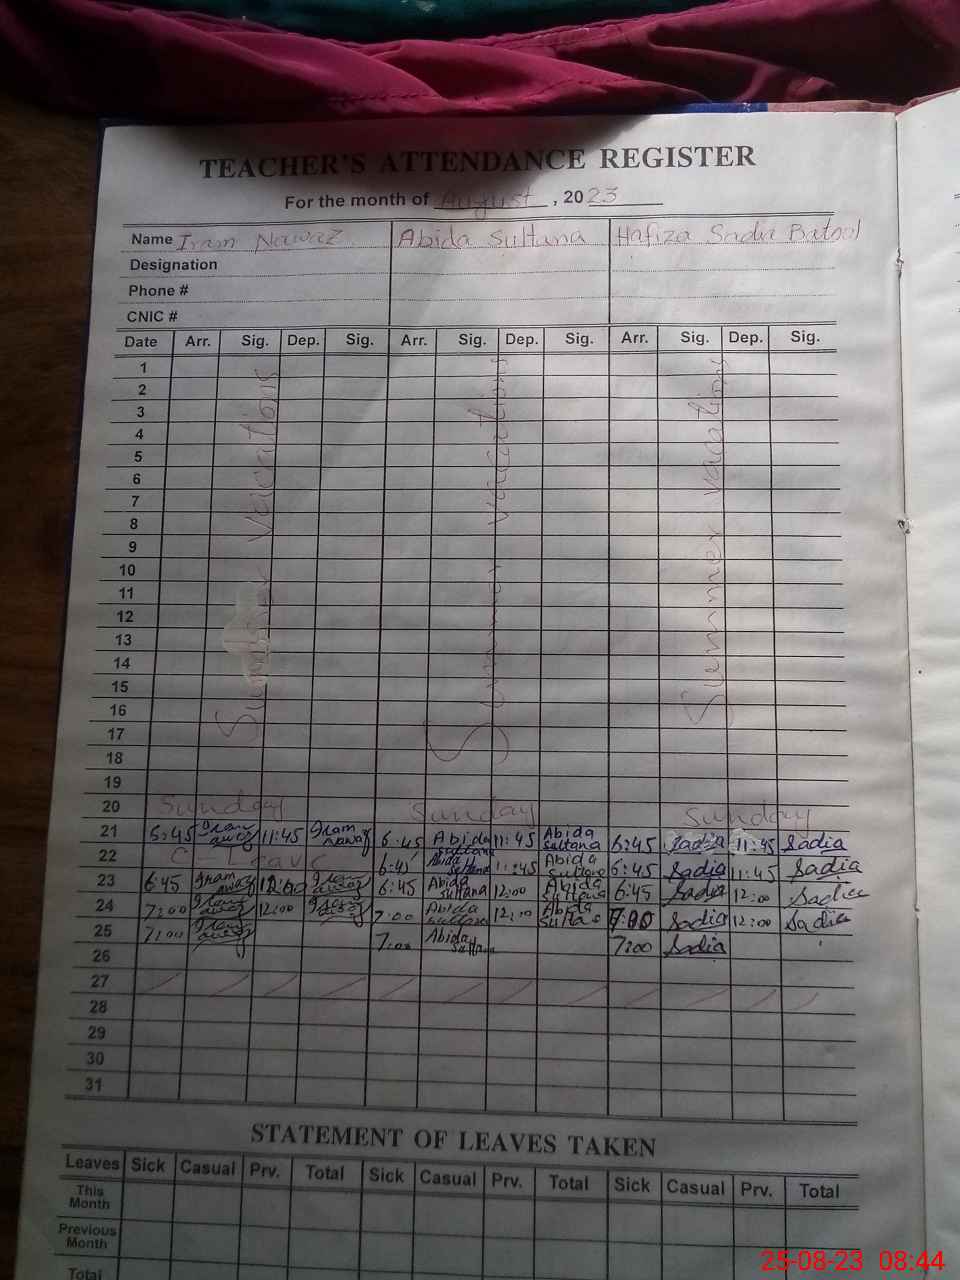 TEACHER'S ATTENDANCE REGISTER
For the month of August, 2023
Name Iram Nawaz Abida Sultana Hafiza Sadia Batool
Designation
Phone #
CNIC #
Date Arr. Sig. Dep. Sig. Arr. Sig. Dep. Sig. Arr. Sig. Dep. Sig.
1
2
3
4
5
6
7
8
9
10
11
12
13
14
15
16
17
18
19
Summer vacations Summer vacations Summer vacations
20 Sunday Sunday Sunday
21 5:45 Iram nawaz 11:45 Iram nawaz 6:45 Abida sultana 11:45 Abida sultana 6:45 Sadia 11:45 Sadia
22 C-Leave 6:45 Abida sultana 11:45 Abida sultana 6:45 Sadia 11:45 Sadia
23 6:45 Iram nawaz 12:00 Iram nawaz 6:45 Abida sultana 12:00 Abida sultana 6:45 Sadia 12:00 Sadia
24 7:00 Iram nawaz 12:00 Iram nawaz 7:00 Abida sultana 12:00 Abida sultana 7:00 Sadia 12:00 Sadia
25 7:00 Iram nawaz 7:00 Abida sultana 7:00 Sadia
26
27
28
29
30
31
STATEMENT OF LEAVES TAKEN
Leaves Sick Casual Prv. Total Sick Casual Prv. Total Sick Casual Prv. Total
This Month
Previous Month
Total
25-08-23 08:44